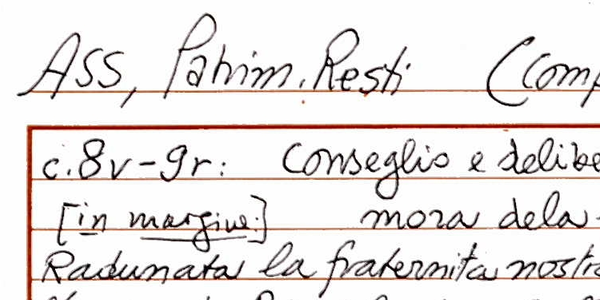 Ass, Patrim. Resti (Comp
c. 8v-9r: Conseglio e delibe
[in margine:] mora dela
Radunata la fraternita nostra